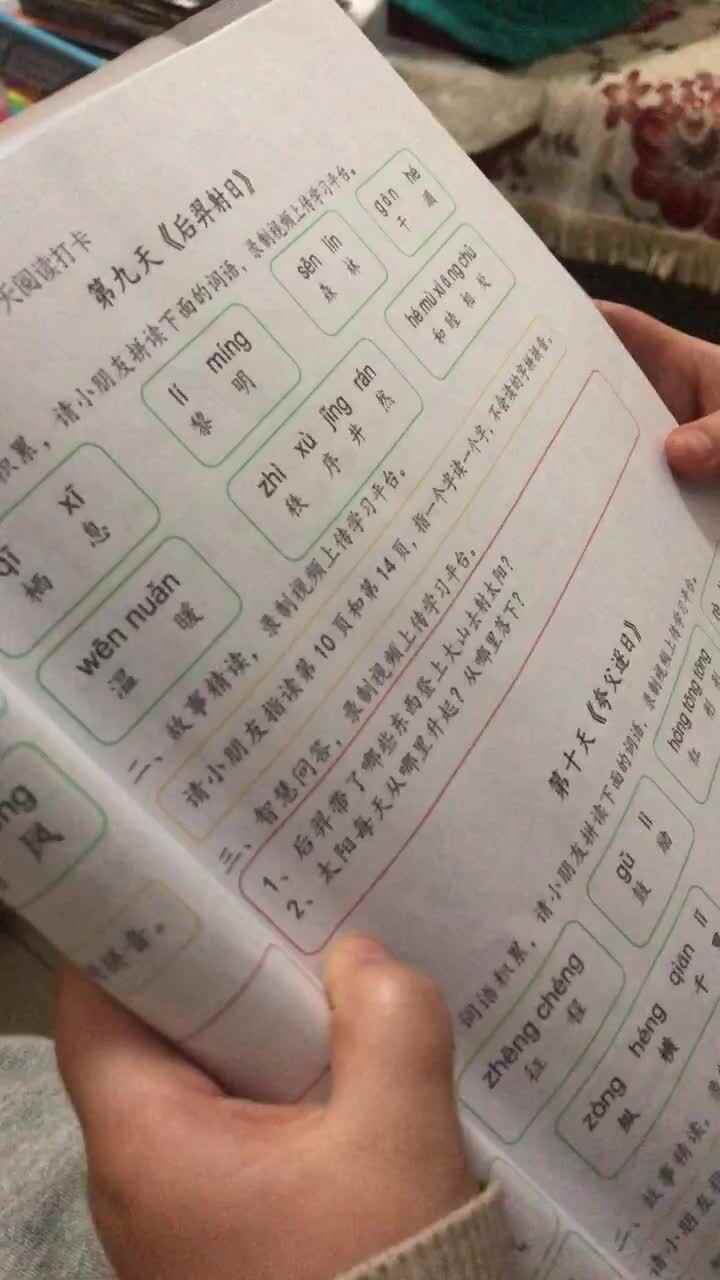 天阅读打卡
第九天《后羿射日》
积累，请小朋友拼读下面的词语，录制视频上传学习平台。
qī xī lí míng sēn lín gān hé
栖息 黎明 森林 干涸
wēn nuǎn zhì xù jǐng rán hé mù xiāng chǔ
温暖 秩序井然 和睦相处
二、故事精读，录制视频上传学习平台。
请小朋友指读第10页和第14页，指一个字读一个字，不会读的字拼拼音。
三、智慧问答，录制视频上传学习平台。
1、后羿带了哪些东西登上大山去射太阳？
2、太阳每天从哪里升起？从哪里落下？
第十天《夸父逐日》
词语积累，请小朋友拼读下面的词语，录制视频上传学习平台。
zhēng chéng gǔ lì hóng tōng tōng
征程 鼓励 红彤彤
zòng héng qiān lǐ
纵横千里
二、故事精读，
请小朋友
风
拼音。